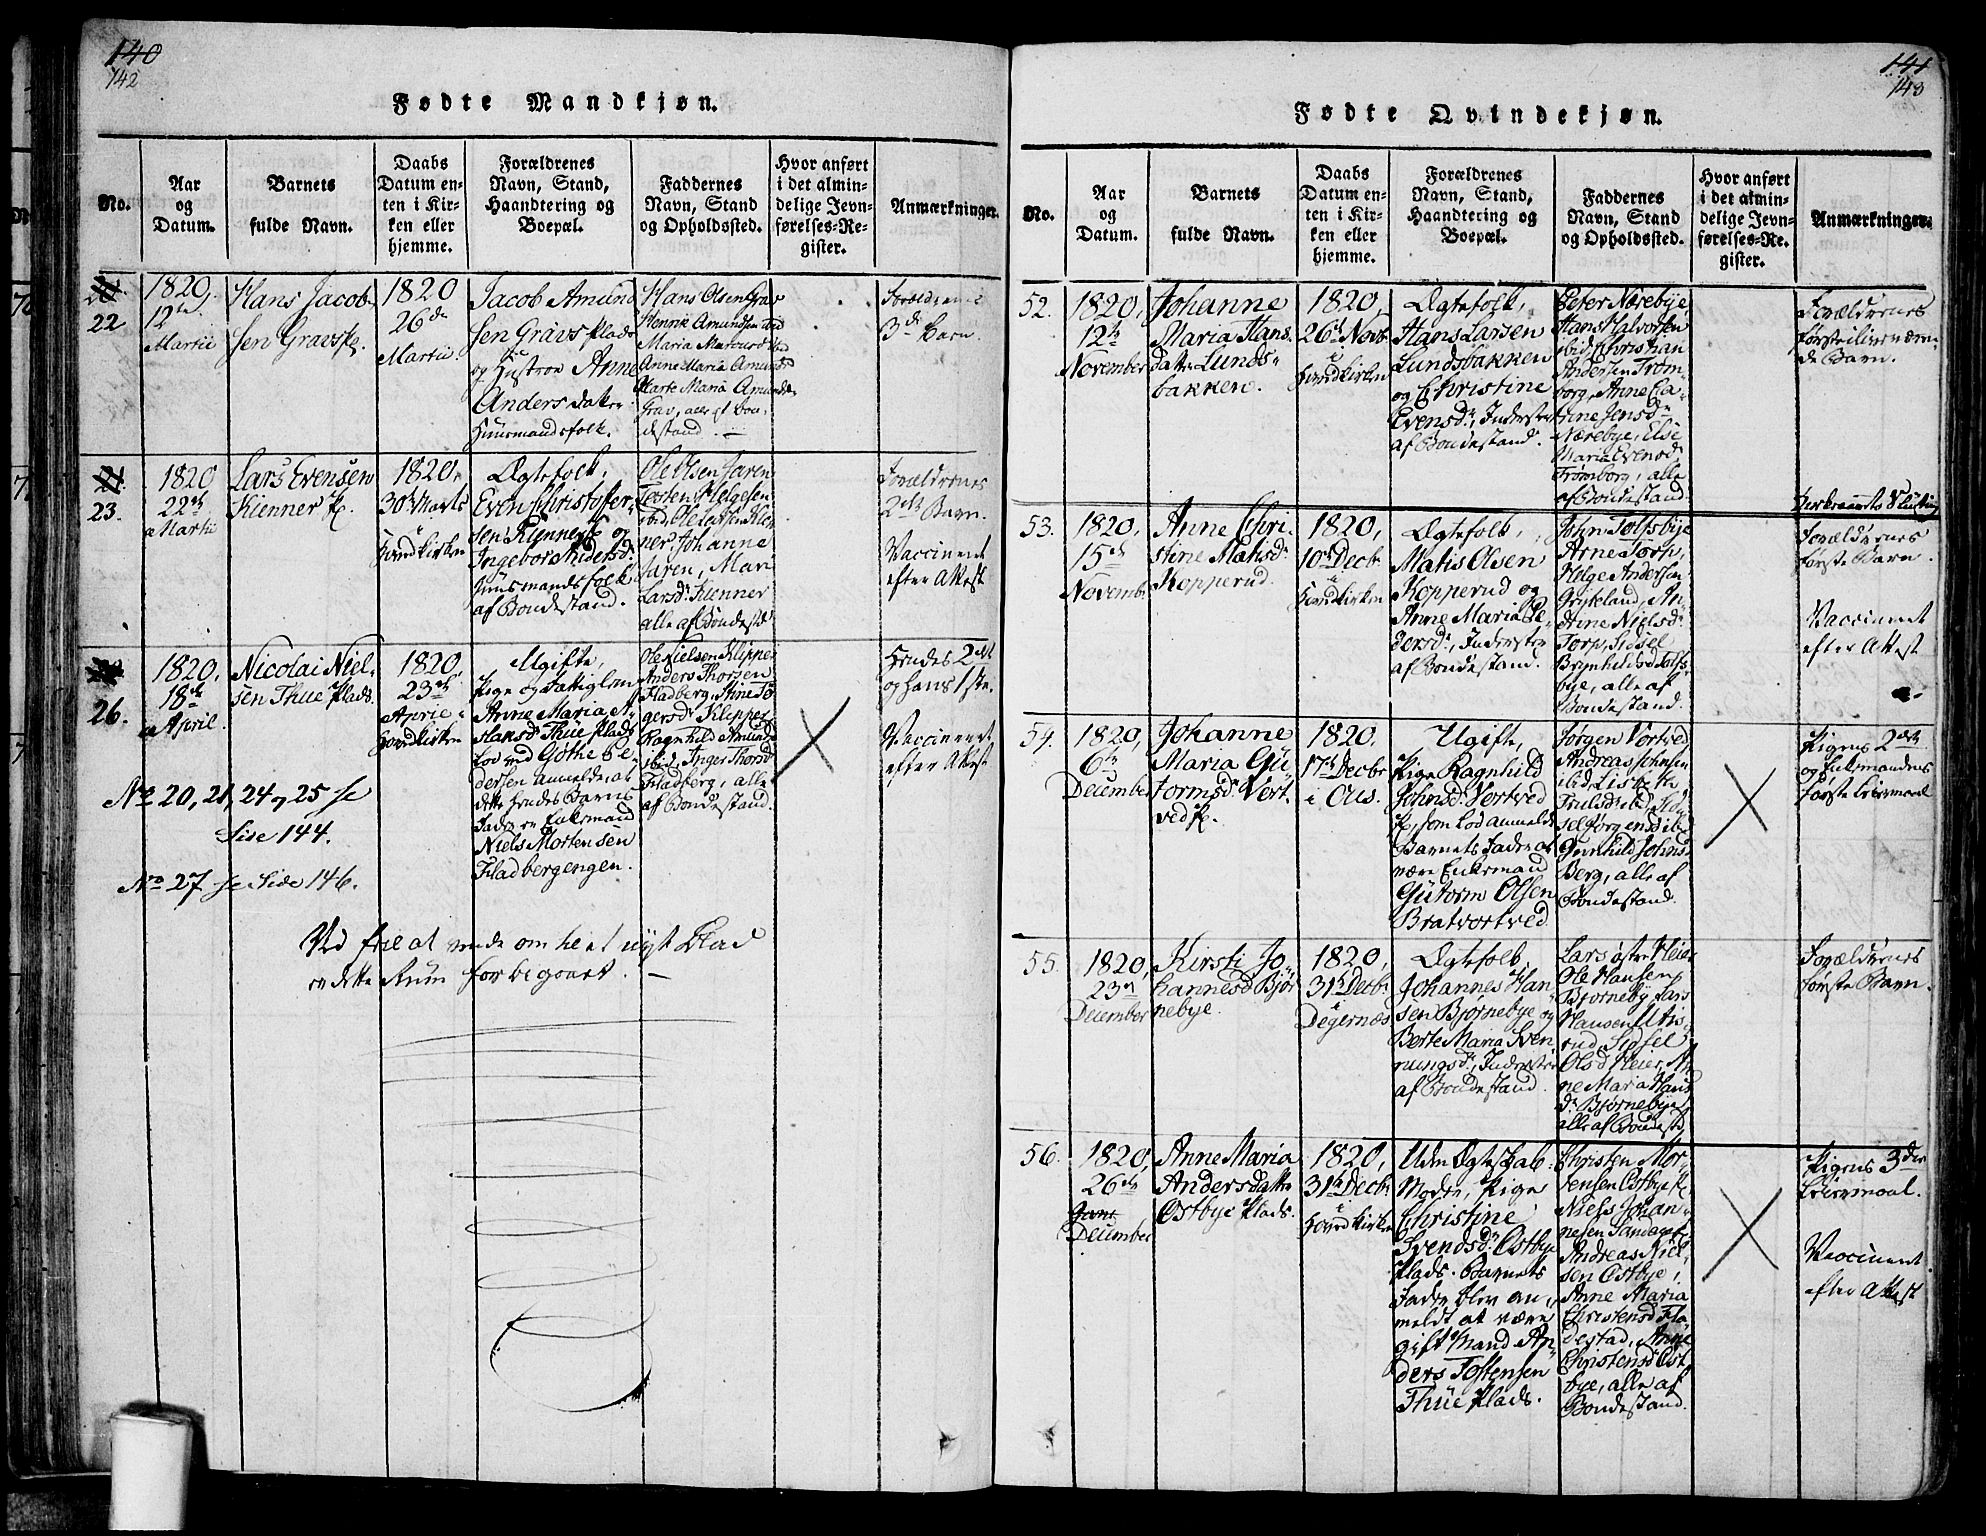 140
142
Fødte Mandkjøn.
No.
Aar
og
Datum.
Barnets
fulde Navn.
Daabs
Datum en-
ten i Kir-
ken eller
hjemme.
Forældrenes
Navn, Stand,
Haandtering og
Boepæl.
Faddernes
Navn, Stand
og Opholdssted.
Hvor anført
i det almin-
delige Jevn-
førelses-Re-
gister.
Anmærkninger.
22
1820,
12te
Martii
Hans Jacob-
sen Gravs
1820
26de
Martii
Jacob Amund
sen Gravs Plads
og Hustroe Anne
Anders datter
Huusmandsfolk.
Hans Olsen Grav
Henrik Amundsen ibid
Anne Maria Amunds
Marte Maria Amunds
Grav, alle af Bon-
destand.
Forældrenes
3de Barn.
21
23.
1820
22de
Martii
Lars Evensen
Kienner
1820,
30te Marts
i
Hovedkirken
Ægtefolk,
Even Christoffer-
sen Kienner og
Ingebor Andersd.
Huusmandsfolk
af Bondestand.
Ole Olsen Jaren
Tosten Helgesen
ibid, Ole Larsen Kien
ner, Johanne
Jaren, Mari
Larsd. Kienner
alle af Bondestd.
Forældrenes
2det Barn.
Vaccineret
efter Attest
26.
1820,
18de
April
Nicolai Niel-
sen Thue Plads.
1820,
23de
April
Hovedkirken
Ugifte,
Pige og Fattiglem
Anne Maria A-
slaksd. Thue Plads
lod ved Gøthe Pe-
dersen anmelde at
dette hendes Barns
Fader er Enkemand
Niels Mortensen
Fladbergengen.
Ole Nielsen Klipper
Anders Thorsen
Fladberg, Stine To
gersd. Klipper
Ragnhild Amunds
ibid, Inger Thorsd.
Fladberg, alle
af Bondestand.
Hendes 2det
og hans 1ste.
Vaccineret
efter Attest
No 20, 21, 24 og 25 se
Side 144.
No 27 se Side 146.
Ved feil at vende om heelt nyt Blad
er dette Rum forbigaaet.
141
143
Fødte Qvindekjøn.
No.
Aar
og
Datum.
Barnets
fulde Navn.
Daabs
Datum en-
ten i Kir-
ken eller
hjemme.
Forældrenes
Navn, Stand,
Haandtering og
Boepæl.
Faddernes
Navn, Stand
og Opholdssted.
Hvor anført
i det almin-
delige Jevn-
førelses-Re-
gister.
Anmærkninger.
52.
1820,
12te
November
Johanne
Maria Hans-
datter Lunds-
bakken.
1820,
26de Novb.
i
Hovedkirken
Ægtefolk,
Hans Larsen
Lundsbakken
og Christine
Evensd., Inderster
af Bondestand.
Peter Nærebye,
Hans Halvorsen
ibid, Christian
Andersen Trøm-
borg, Anne Ca-
trine Jensd.
Nærebye, Else
Maria Evensd.
Trømborg, alle
af Bondestand.
Forældrenes
første
Barn.
53.
1820,
15de
November
Anne Chri-
stine Matisd.
Kopperud.
1820,
10de Decbr.
i
Hovedkirken
Ægtefolk,
Matis Olsen
Kopperud og
Anne Maria Pe-
dersd., Inderster
af Bondestand.
John Tolfsbye
Arne Torp,
Helge Andersen
Grykeland, An-
drine Nielsd.
Torp, Sidsel
Brynhildsd. Tolfs-
bye, alle af
Bondestand.
Forældrenes
første Barn.
Vaccineret
efter Attest
54.
1820,
6te
December
Johanne
Maria Gu-
tormsd. Vort-
ved
1820,
17de Decbr
i Ous.
Ugifte,
Pige Ragnhild
Johnsd. Vortved
som lod anmelde
Barnets Fader at
være Enkemand
Gutorm Olsen
Bratvortved
Jørgen Vortved
Andreas Johnsen
ibid, Lisbethe
Trulsd. ibid, Sid-
sel Jørgensd. ibid
Gunhild Johnsd.
Berg, alle af
Bondestand.
Pigens 2det
og Enkemandens
første Leiermaal
55.
1820,
23de
December
Kirsti Jo
hannesd. Bjør
nebye.
1820,
31te Decbr
i
Degernæs
Ægtefolk,
Johannes Han
sen Bjørnebye og
Berte Maria Sven
ningsd., Inderster
af Bondestand.
Lars østre Heier
Ole Hansen
Bjørneby, Lars
Hansen Utis-
rud, Sissel
Olsd. Heier, An
ne Maria Hans
d. Bjørnebye
alle af Bondestd.
Forældrenes
første Barn.
56.
1820,
26de
December
Anne Maria
Andersdatter
Østbye Plads.
1820,
31te Decbr
i
Hovedkirken
Uden Ægteskab.
Moder, Pige
Christine
Svendsd. Østbye
Plads. Barnets
Fader blev an-
meldt at være
gift Mand An-
ders Tostensen
Thue Plads.
Christen Mor-
tensen Østbye
Niels Johan-
nesen Sandager
Andreas Niel-
sen Østbye,
Anne Maria
Christensd. Fla-
destad, Anne
Christensd. Øst-
bye, alle af
Bondestand.
Pigens 3die
Leiermaal.
Vaccineret
efter Attest